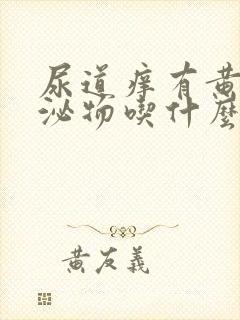 尿道痒有黄
泌物喫什麼
黄友義